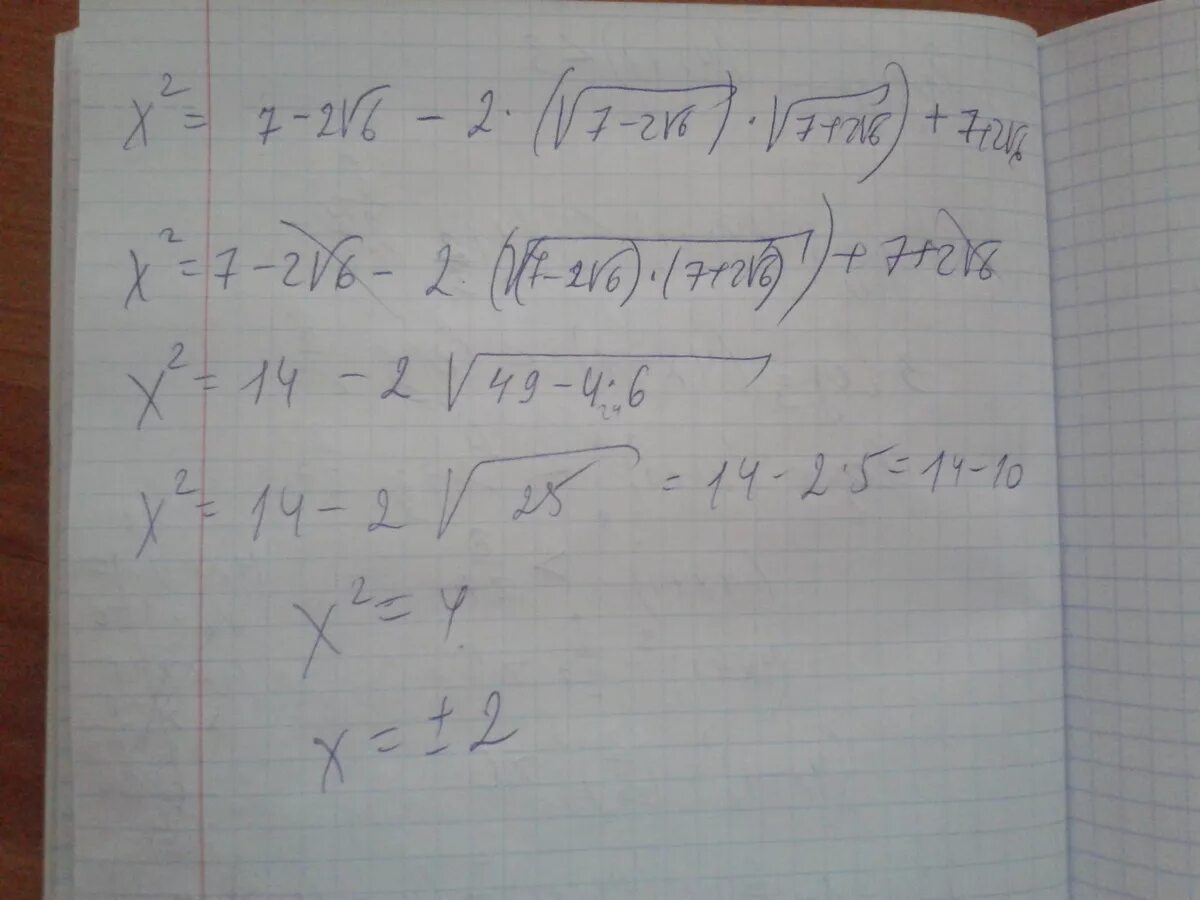 x² = 7 - 2√6 - 2 · (√(7 - 2√6) · √(7 + 2√6)) + 7 + 2√6
x² = 7 - 2√6 - 2 · (√((7 - 2√6) · (7 + 2√6))) + 7 + 2√6
x² = 14 - 2 √(49 - 4 · 6)
24
x² = 14 - 2 √25 = 14 - 2 · 5 = 14 - 10
x² = 4
x = ± 2